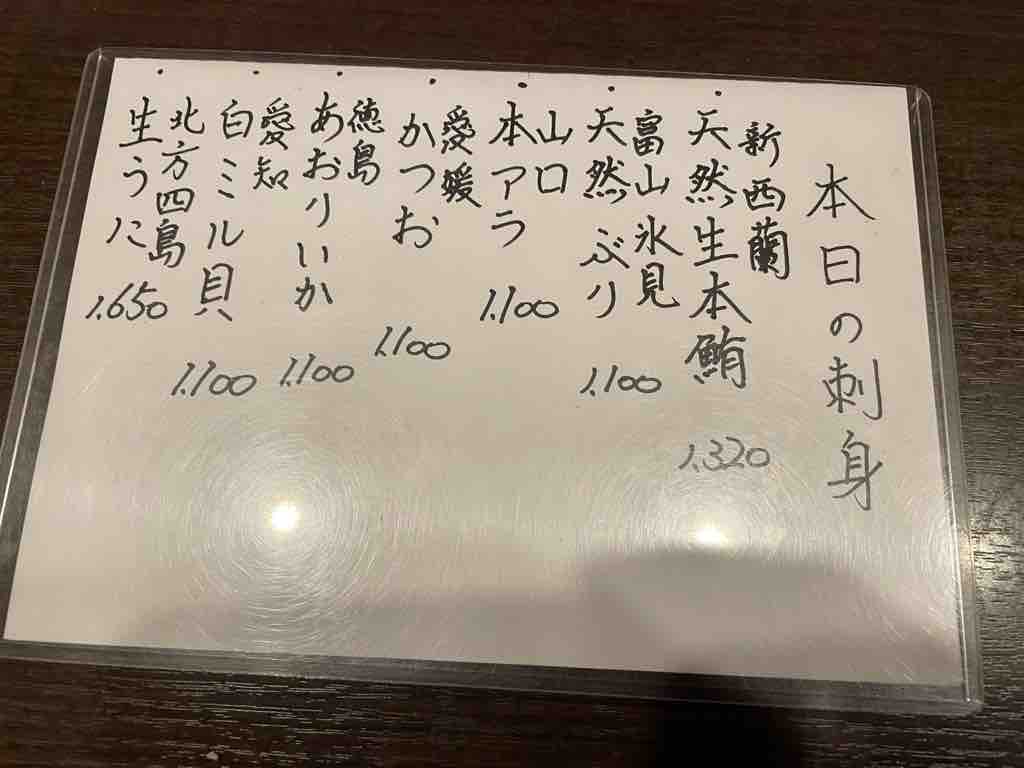 本日の刺身
新西蘭
天然生本鮪
1.320
富山氷見
天然ぶり
1.100
山口
本アラ
1.100
愛媛
かつお
1.100
徳島
あおりいか
1.100
愛知
白ミル貝
1.100
北方四島
生うに
1.650